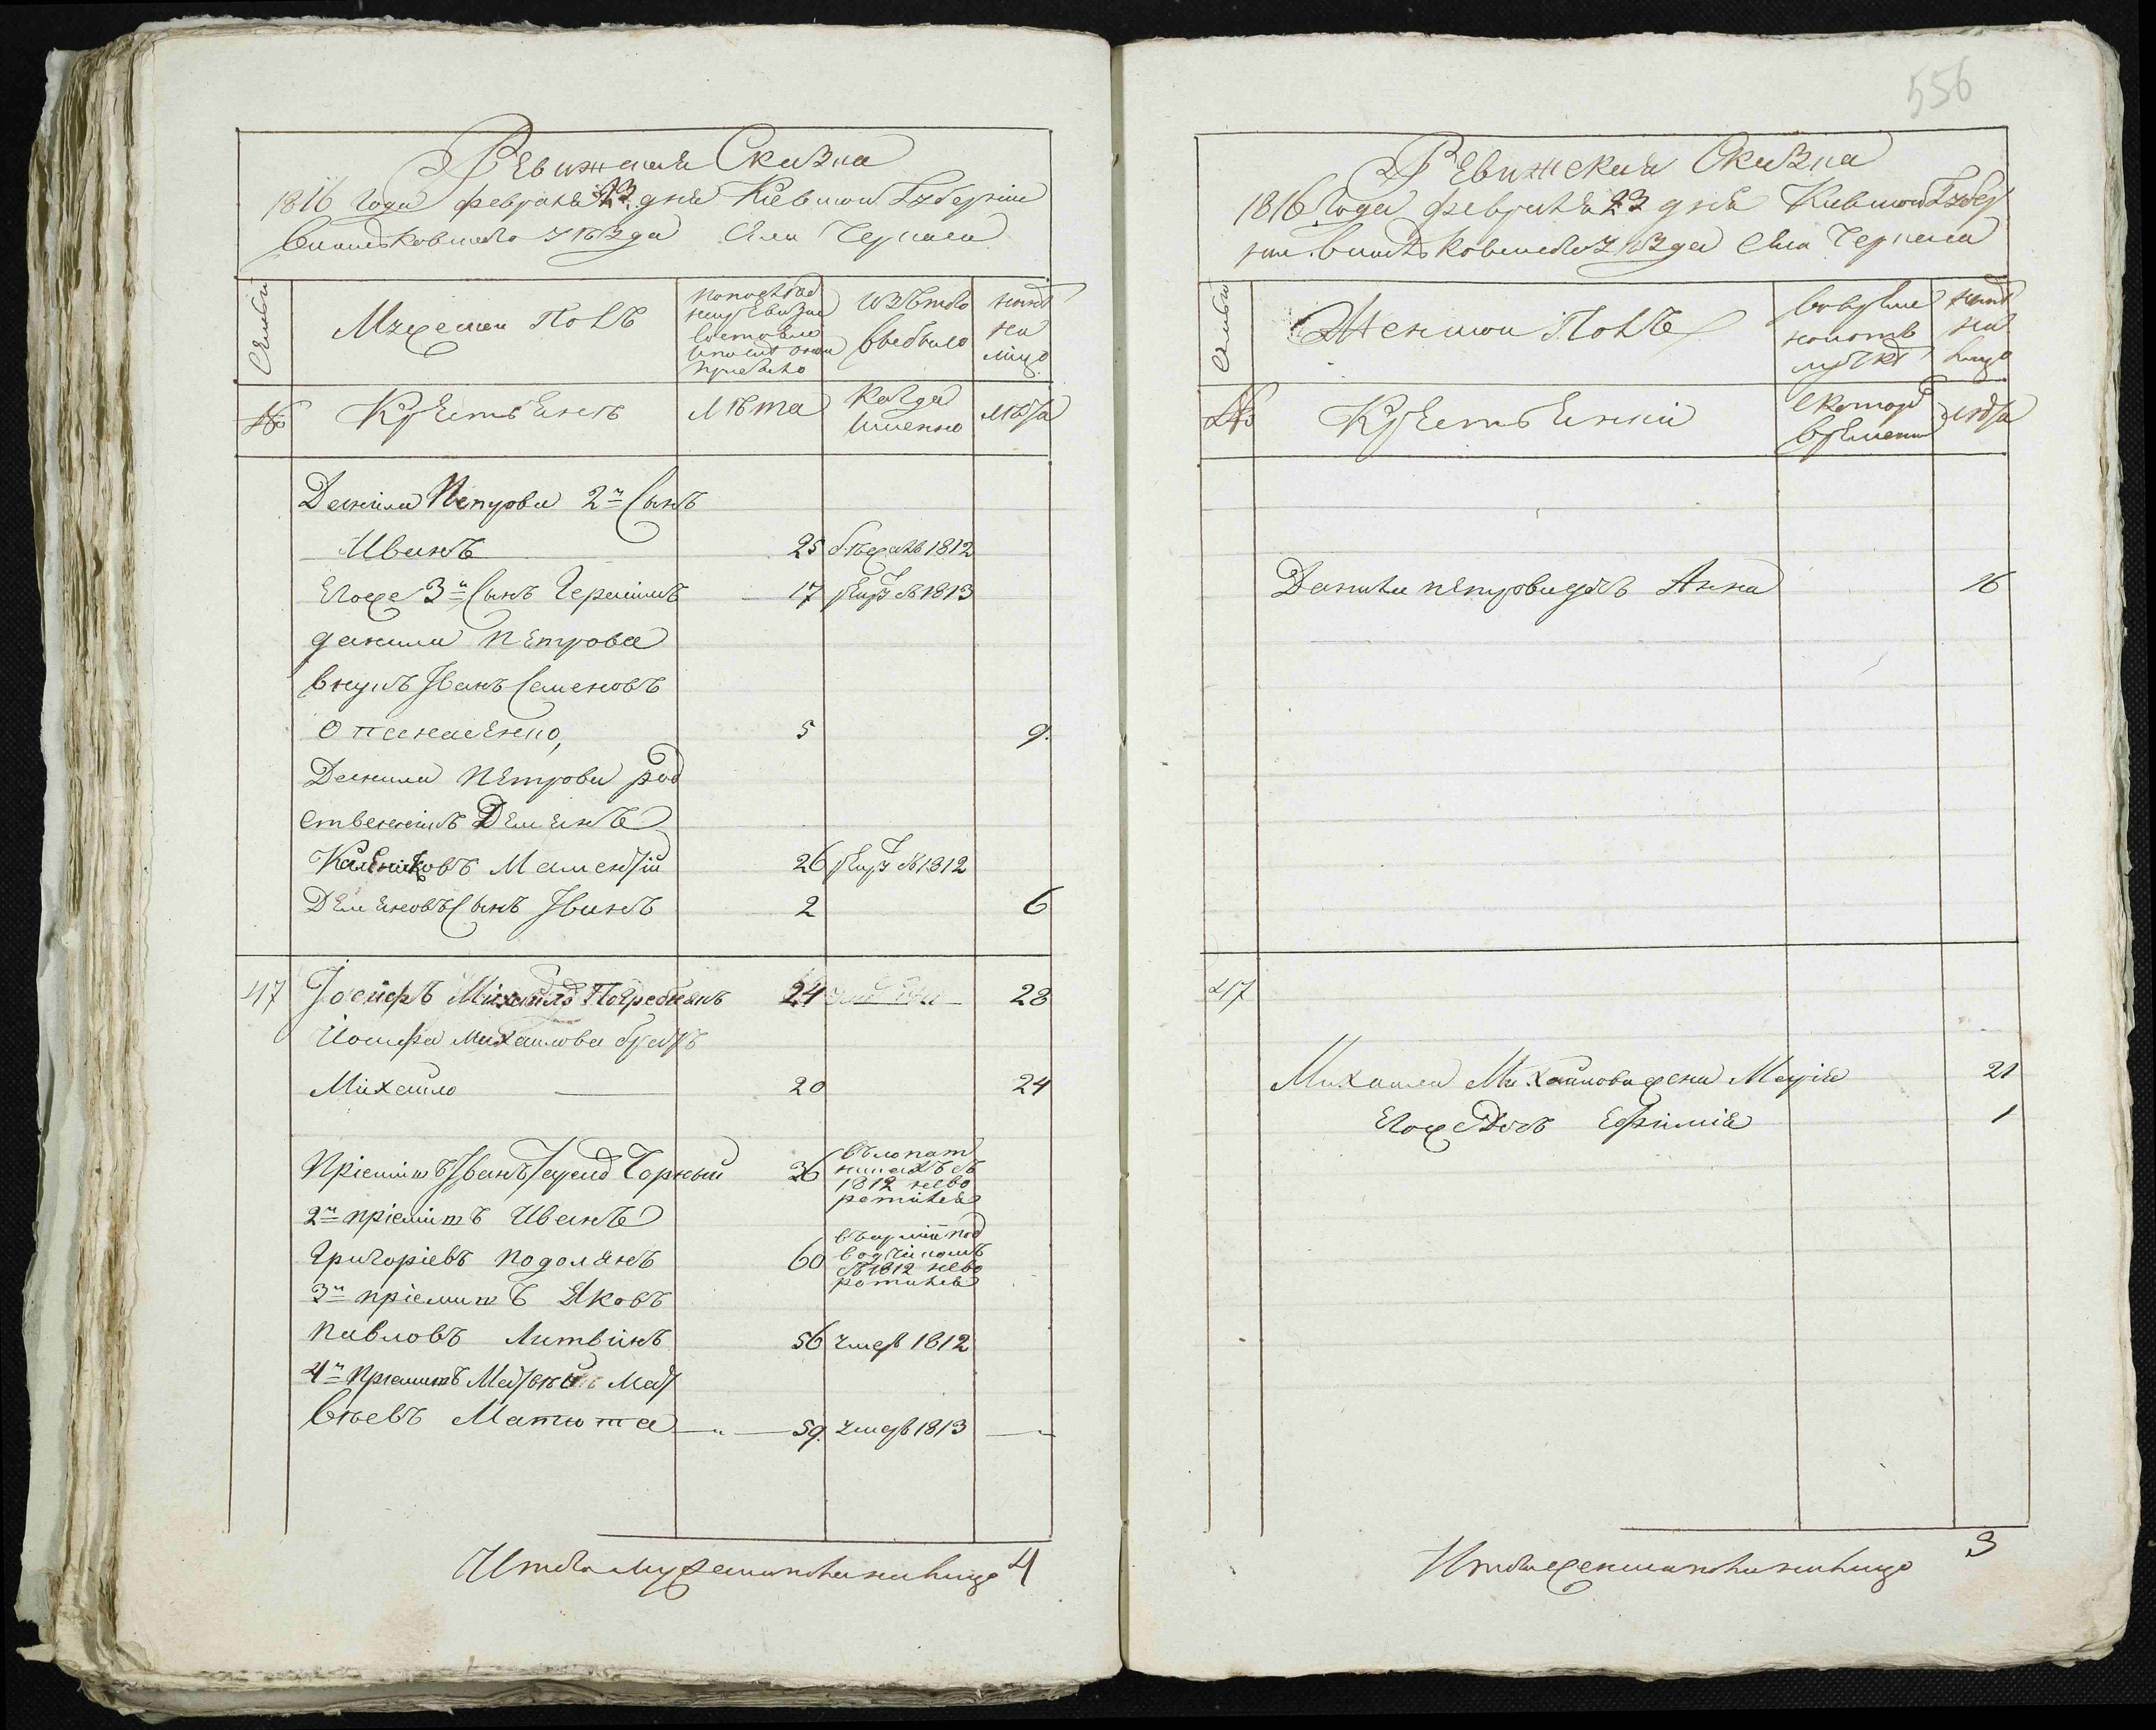 556
Ревижская Сказка
1816 Года февраля 23 дня Киевской Губернiи
Василковского уезда Села Черкаса
Семьи
Мужеска Полъ
По последней ревизiи состояло и после оной прибыло
Изъ того выбыло
Ныне на лицо
№
Крестьянъ
Лета
Когда Именно
Лета
Данила Петрова 2й Сынъ
Иванъ 25 бежалъ 1812
Егоже 3й Сынъ Герасимъ 17 рекру въ 1813
данила Петрова
внукъ Iванъ Семеновъ
Опанасенко 5 9.
Данила Петрова род
ственникъ Демянъ
26 рекру въ 1812
Демяновъ Сынъ Iванъ 2 6
47 Iосифъ Михайловъ Погребнякъ 24 28
Иосифа Михайлова братъ
Михайло 20 24
Прiемишъ Iванъ Чорный 36 1812 нево ротился
2й прiемишъ Иванъ
Григорiевъ Подолянъ 60 въ армiи под водчикомъ въ 1812 нево ротился
3й прiемишъ Яковъ
Павловъ Литвинъ 56 умер 1812
4й Прiемишъ Матвей Мат
веевъ Матюта 59. умер 1813
Итого мужеска пола на лицо 4
Ревижская Сказка
1816 Года февраля 23 дня Киевской Губер
нiи Василковского уезда Села Черкаса
Семьи
Женской Полъ
Во временной отлучке
Ныне на лицо
№
Крестьянки
С котораго времени
Лета
Данила Петрова дочь Анна 16
47
Михайла Михайлова жена Марiя 21
Егоже Дочь Ефимiя 1
Итого женска пола на лицо 3